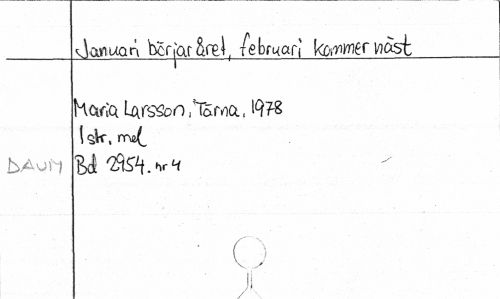 Januari börjar året, februari kommer näst
Maria Larsson, Tärna, 1978
1 str, mel
DAUM Bd 2954. nr 4